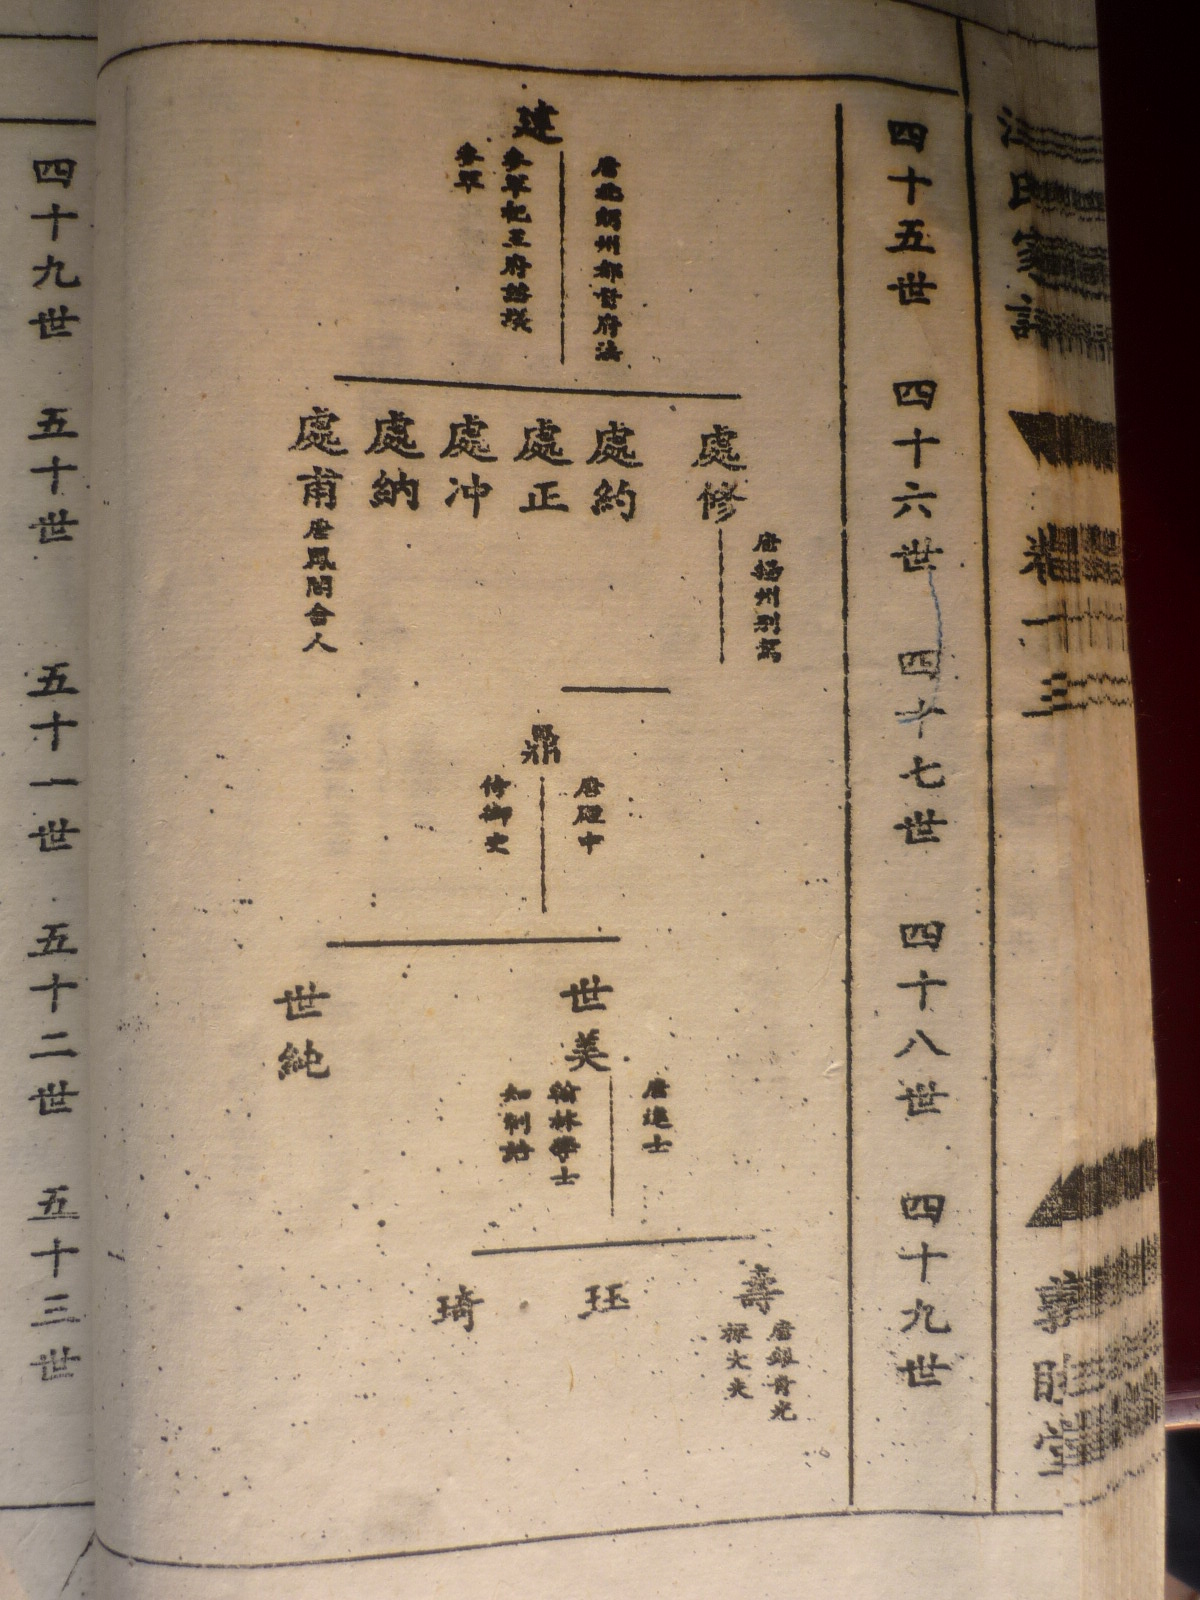 氏家
卷一
三
四十五世　四十六世　四十七世　四十八世　四十九世
建
唐 州都督府法
參軍 王府諮議
參軍
處修
唐揚州別駕
處約
處正
處冲
處納
處甫
唐鳳閣舍人
鼎
唐殿中
侍御史
世美
唐進士
翰林學士
知制誥
世純
壽
唐銀青光
祿大夫
珏
琦
四十九世　五十世　五十一世　五十二世　五十三世